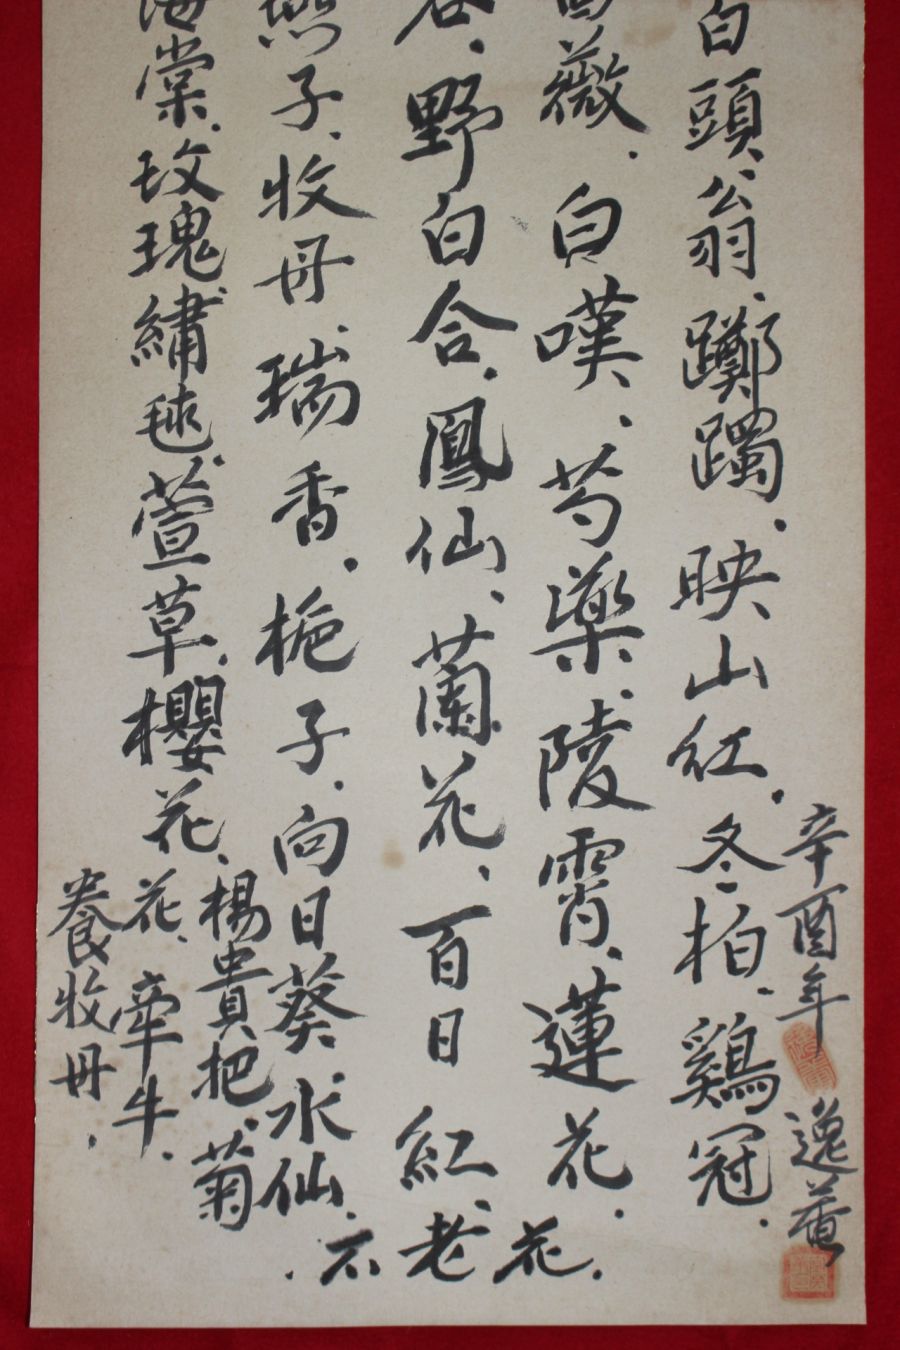 白頭翁、躑躅、映山紅、冬柏、鷄冠、
薇、白嘆、芍藥、陵霄、蓮花、
野白合、鳳仙、蘭花、百日紅、
不老花、
子、牧丹、瑞香、梔子、向日葵、水仙、
棠、玫瑰、繡毬、萱草、櫻花、
楊貴把、菊
花、牽牛、
養牧丹、
辛酉年
逸菴